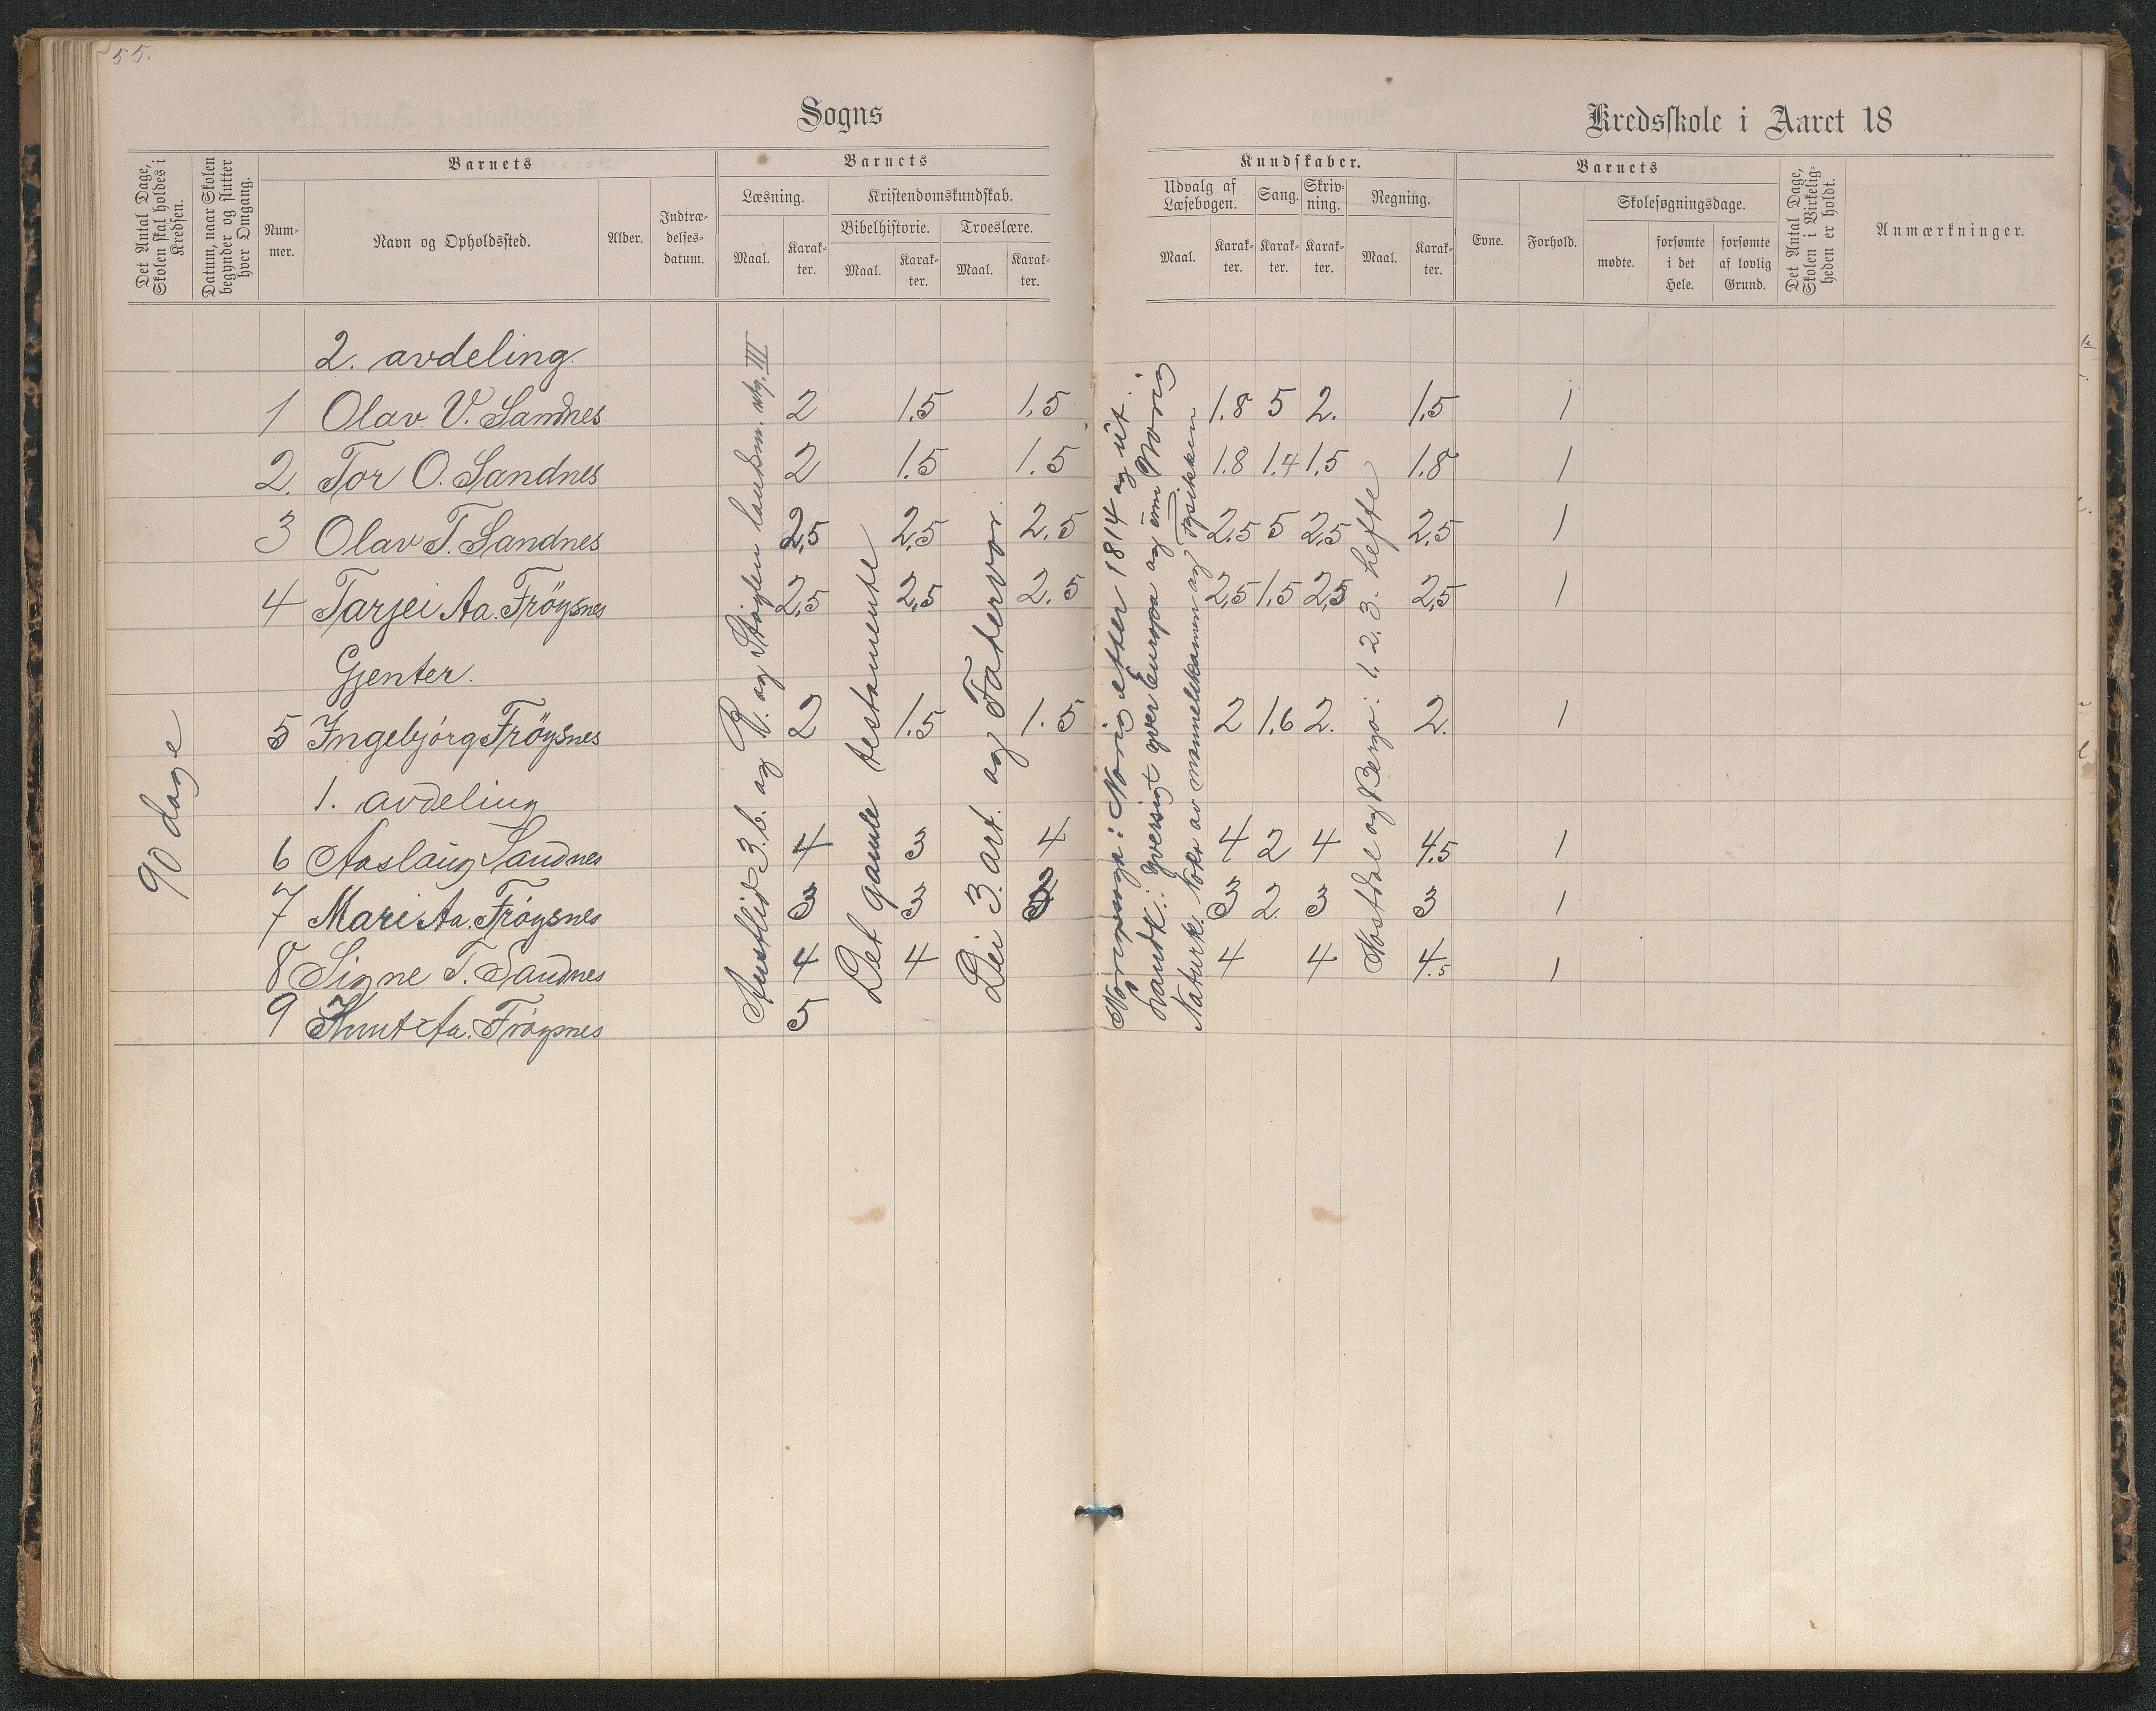 55.
Sogns
Kredsskole i Aaret 18
Det Antal Dage, Skolen skal holdes i Kredsen.
Datum, naar Skolen begynder og slutter hver Omgang.
Barnets
Nummer.
Navn og Opholdssted.
Alder.
Indtrædelsesdatum.
Barnets
Læsning.
Maal.
Karakter.
Kristendomskundskab.
Bibelhistorie.
Maal.
Karakter.
Troeslære.
Maal.
Karakter.
Kundskaber.
Udvalg af Læsebogen.
Maal.
Karakter.
Sang.
Karakter.
Skrivning.
Karakter.
Regning.
Maal.
Karakter.
Barnets
Evne.
Forhold.
Skolesøgningsdage.
mødte.
forsømte i det Hele.
forsømte af lovlig Grund.
Det Antal Dage, Skolen i Virkeligheden er holdt.
Anmærkninger.
2. avdeling.
1 Olav V. Sandnes 2 1.5 1.5 1.8 5 2. 1.5 1
2. Tor O. Sandnes 2 1.5 1.5 1.8 1.4 1.5 1.8 1
3 Olav T. Sandnes 2,5 2,5 2.5 2,5 5 2,5 2,5 1
4 Tarjei Aa. Frøysnes 2,5 2,5 2.5 2,5 1.5 2,5 2,5 1
Gjenter.
5 Ingebjørg Frøysnes 2 1.5 1.5 2 1.6 2. 2. 1
1. avdeling
6 Aaslaug Sandnes 4 3 4 4 2 4 4.5 1
7 Mari Aa. Frøysnes 3 3 3 2 3 3 1
8 Signe T. Sandnes 4 4 4 4 4.5 1
9 Knut Aa. Frøysnes 5
90 dage
Austlid 3. b. og R. og Støylen landsm. utg. III
Det gamle testamente
Dei 3. art. og Fadervor
Noregssoga: Norig etter 1814 og ut.
Landk.: Yversigt yver Europa og um Norig
Naturk. Noko av mannelikamen og fysikken
Nostdal og Berge: 1. 2. 3. hefte